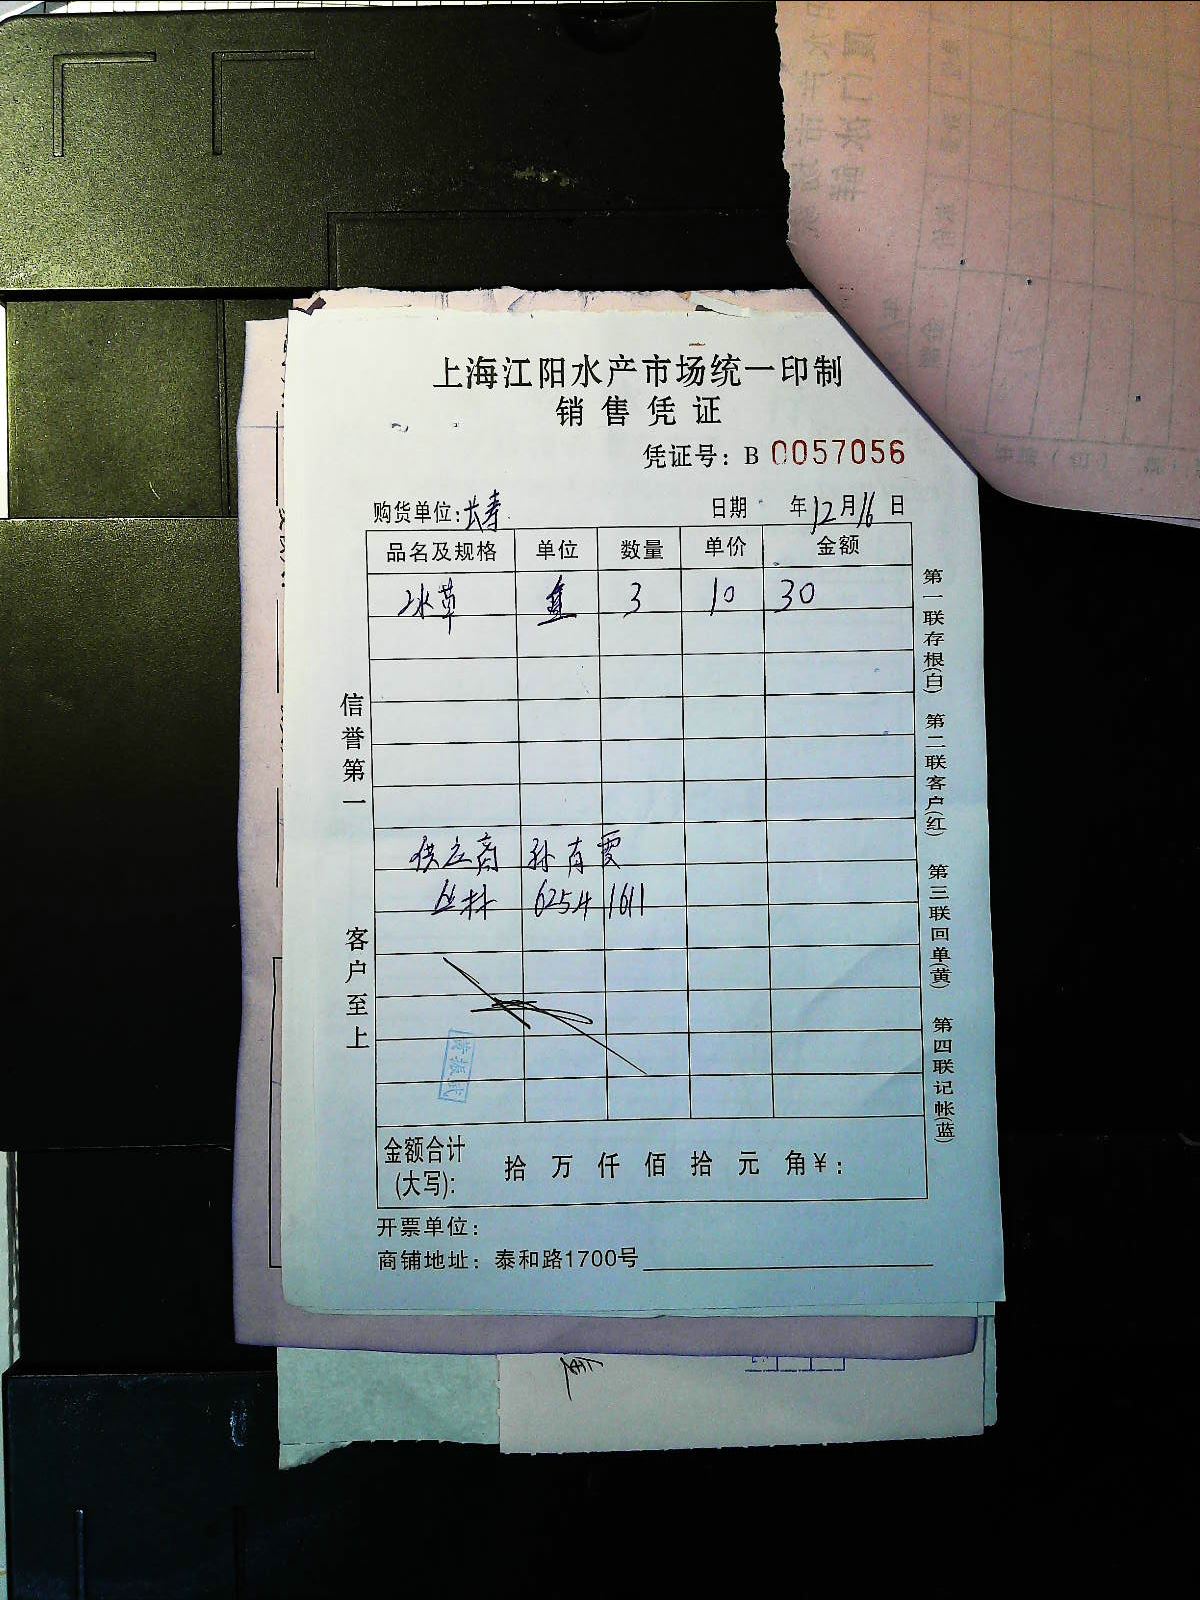 上海江阳水产市场统一印制
销售凭证
凭证号：B 0057056
购货单位：长寿 日期 年12月16日
品名及规格 单位 数量 单价 金额
冰草 盒 3 10 30
供应商 孙育霞
丛林 6254 1611
金额合计(大写)： 拾 万 仟 佰 拾 元 角 ¥：
开票单位：
商铺地址：泰和路1700号
信誉第一 客户至上
第一联存根(白) 第二联客户(红) 第三联回单(黄) 第四联记帐(蓝)